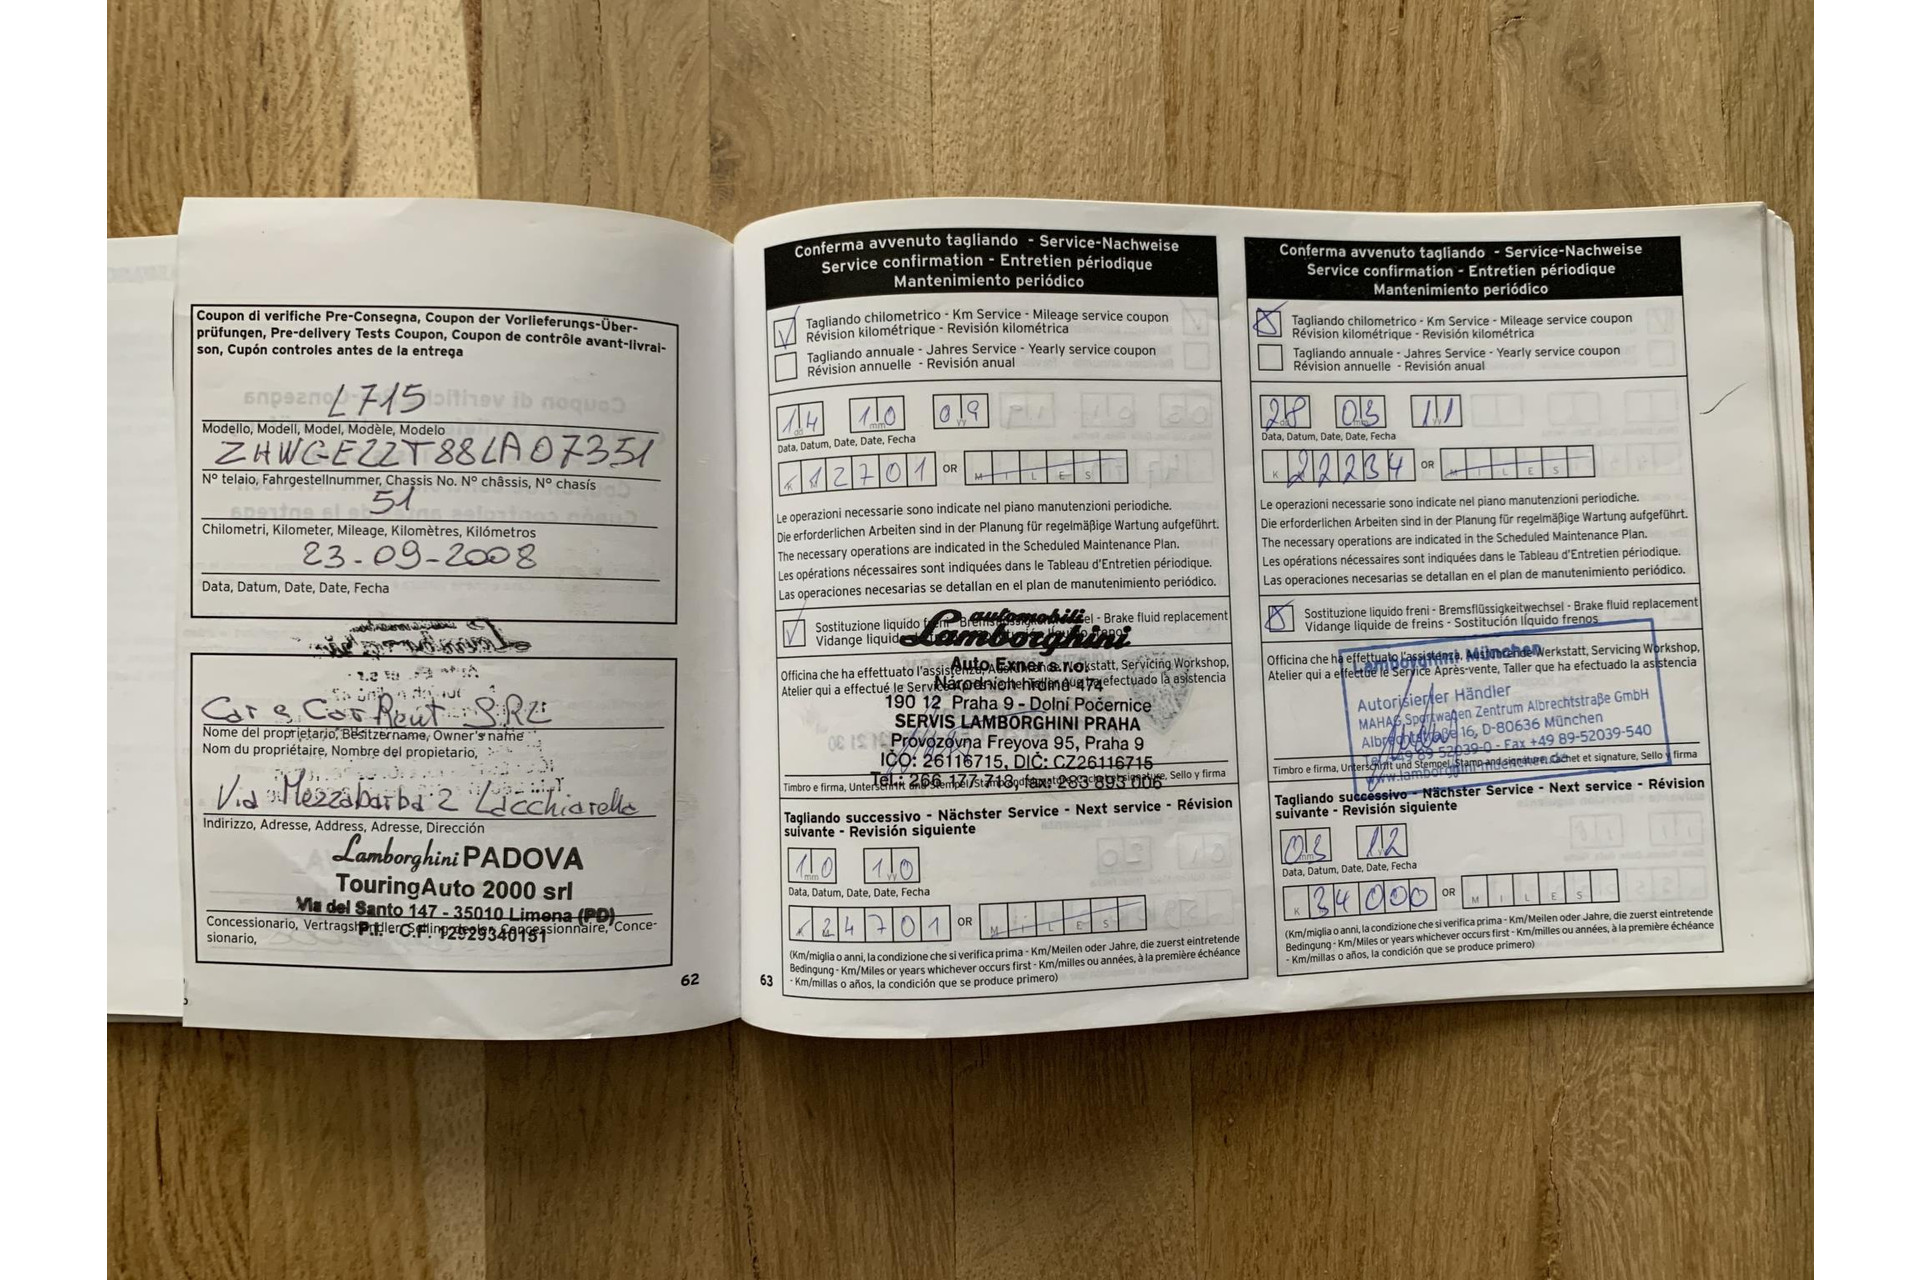 Coupon di verifiche Pre-Consegna, Coupon der Vorlieferungs-Über-
prüfungen, Pre-delivery Tests Coupon, Coupon de contrôle avant-livrai-
son, Cupón controles antes de la entrega
L715
Modello, Modell, Model, Modèle, Modelo
ZHWGE22T88LA07351
N° telaio, Fahrgestellnummer, Chassis No. N° châssis, N° chasís
51
Chilometri, Kilometer, Mileage, Kilomètres, Kilómetros
23-09-2008
Data, Datum, Date, Date, Fecha
Car & Car Rent SRL
Nome del proprietario, Besitzername, Owner's name
Nom du propriétaire, Nombre del propietario,
Via Mezzabarba 2 Lacchiarella
Indirizzo, Adresse, Address, Adresse, Dirección
Lamborghini PADOVA
TouringAuto 2000 srl
Via del Santo 147 - 35010 Limena (PD)
Concessionario, Vertragshändler, Selling dealer, Concessionnaire, Conce-
sionario,
P.I. - C.F. 12929340151
62
Conferma avvenuto tagliando - Service-Nachweise
Service confirmation - Entretien périodique
Mantenimiento periódico
Tagliando chilometrico - Km Service - Mileage service coupon
Révision kilométrique - Revisión kilométrica
Tagliando annuale - Jahres Service - Yearly service coupon
Révision annuelle - Revisión anual
14 10 09
Data, Datum, Date, Date, Fecha
12701 OR MILES
Le operazioni necessarie sono indicate nel piano manutenzioni periodiche.
Die erforderlichen Arbeiten sind in der Planung für regelmäßige Wartung aufgeführt.
The necessary operations are indicated in the Scheduled Maintenance Plan.
Les opérations nécessaires sont indiquées dans le Tableau d'Entretien périodique.
Las operaciones necesarias se detallan en el plan de manutenimiento periódico.
Sostituzione liquido freni - Bremsflüssigkeitwechsel - Brake fluid replacement
Vidange liquide
automobili
Lamborghini
Officina che ha effettuato l'assistenza, Servicing Workshop,
Atelier qui a effectué le Service
Auto Exner s.r.o.
Národních hrdinů 474
190 12 Praha 9 - Dolní Počernice
SERVIS LAMBORGHINI PRAHA
Provozovna Freyova 95, Praha 9
IČO: 26116715, DIČ: CZ26116715
Tel.: 266 177 718, fax: 283 893 006
Timbro e firma, Unterschrift und Stempel, Stamp and signature, Cachet et signature, Sello y firma
Tagliando successivo - Nächster Service - Next service - Révision
suivante - Revisión siguiente
10 10
mm yy
Data, Datum, Date, Date, Fecha
24701 OR MILES
(Km/miglia o anni, la condizione che si verifica prima - Km/Meilen oder Jahre, die zuerst eintretende
Bedingung - Km/Miles or years whichever occurs first - Km/milles ou années, à la première échéance
- Km/millas o años, la condición que se produce primero)
63
Conferma avvenuto tagliando - Service-Nachweise
Service confirmation - Entretien périodique
Mantenimiento periódico
Tagliando chilometrico - Km Service - Mileage service coupon
Révision kilométrique - Revisión kilométrica
Tagliando annuale - Jahres Service - Yearly service coupon
Révision annuelle - Revisión anual
28 03 11
Data, Datum, Date, Date, Fecha
22234 OR MILES
Le operazioni necessarie sono indicate nel piano manutenzioni periodiche.
Die erforderlichen Arbeiten sind in der Planung für regelmäßige Wartung aufgeführt.
The necessary operations are indicated in the Scheduled Maintenance Plan.
Les opérations nécessaires sont indiquées dans le Tableau d'Entretien périodique.
Las operaciones necesarias se detallan en el plan de manutenimiento periódico.
Sostituzione liquido freni - Bremsflüssigkeitwechsel - Brake fluid replacement
Vidange liquide de freins - Sostitución líquido frenos
Officina che ha effettuato l'assistenza, Ausführende Werkstatt, Servicing Workshop,
Atelier qui a effectué le Service Après-vente, Taller que ha efectuado la asistencia
Lamborghini München
Autorisierter Händler
MAHAG Sportwagen Zentrum Albrechtstraße GmbH
Albrechtstraße 16, D-80636 München
+49 89-52039-0 - Fax +49 89-52039-540
www.lamborghini-muenchen.de
Timbro e firma, Unterschrift und Stempel, Stamp and signature, Cachet et signature, Sello y firma
Tagliando successivo - Nächster Service - Next service - Révision
suivante - Revisión siguiente
03 12
Data, Datum, Date, Date, Fecha
K 34000 OR MILES
(Km/miglia o anni, la condizione che si verifica prima - Km/Meilen oder Jahre, die zuerst eintretende
Bedingung - Km/Miles or years whichever occurs first - Km/milles ou années, à la première échéance
- Km/millas o años, la condición que se produce primero)